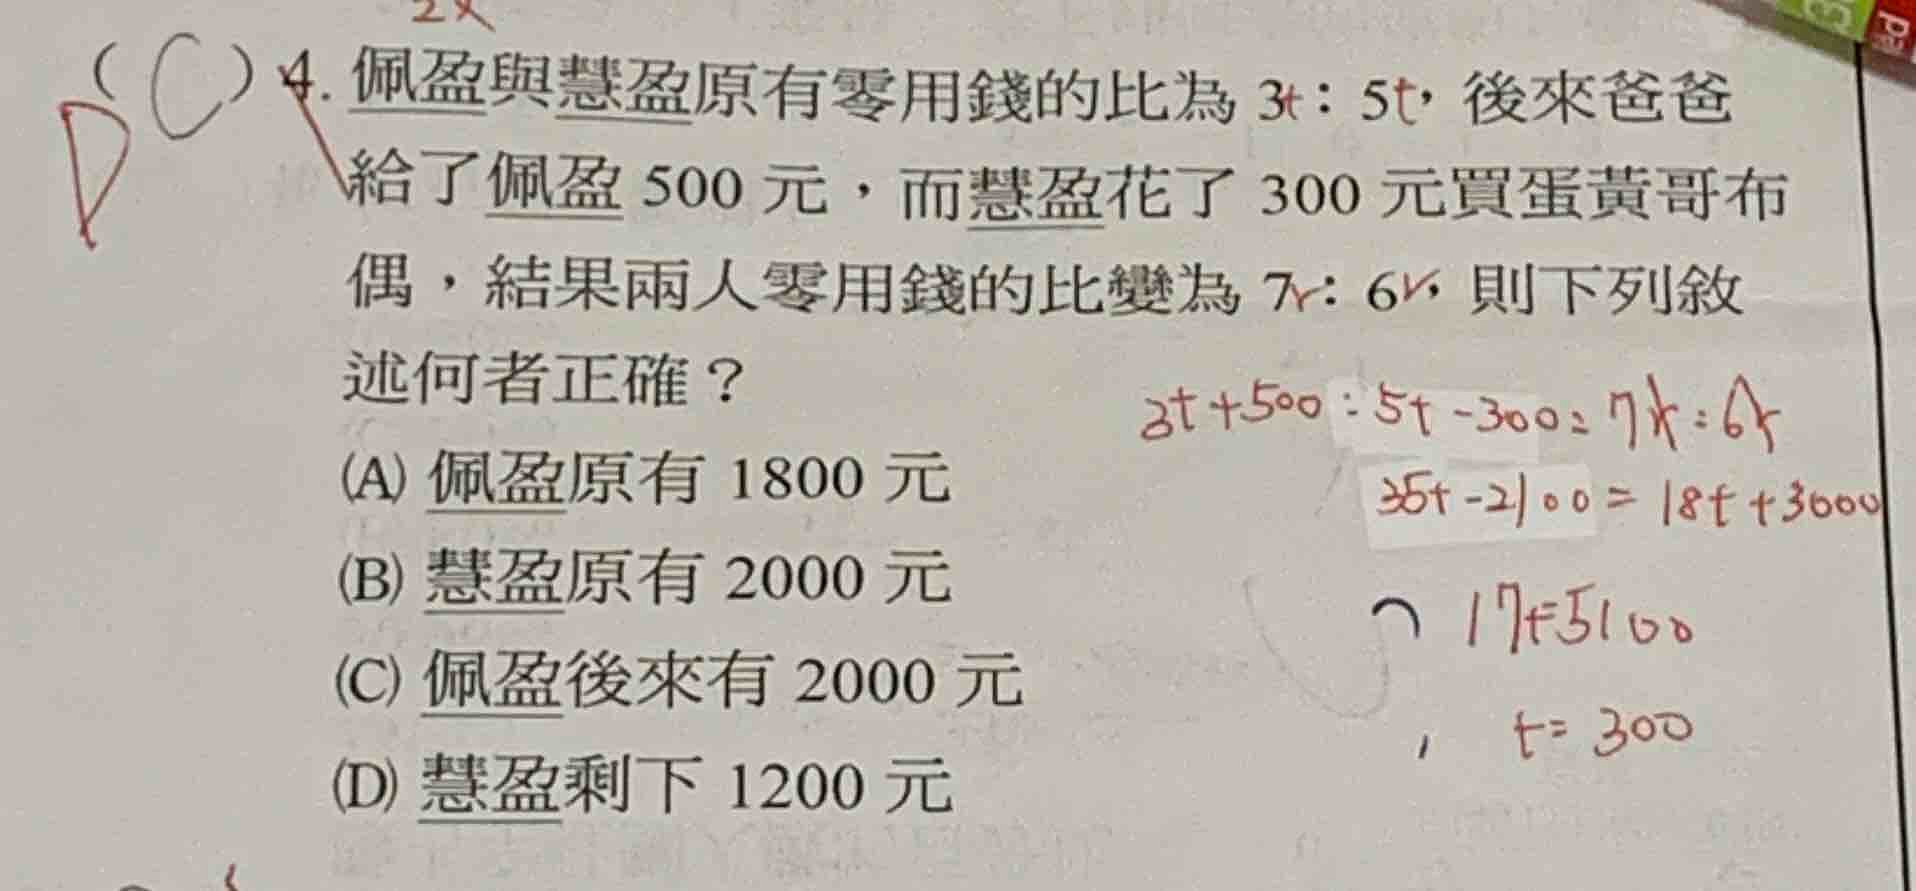 2x
D (C) 4. 佩盈與慧盈原有零用錢的比為 3t：5t，後來爸爸
給了佩盈 500 元，而慧盈花了 300 元買蛋黃哥布
偶，結果兩人零用錢的比變為 7r：6r，則下列敘
述何者正確？
3t+500:5t-300=7r:6r
(A) 佩盈原有 1800 元
35t-2100=18t+3000
(B) 慧盈原有 2000 元
17t=5100
(C) 佩盈後來有 2000 元
t=300
(D) 慧盈剩下 1200 元